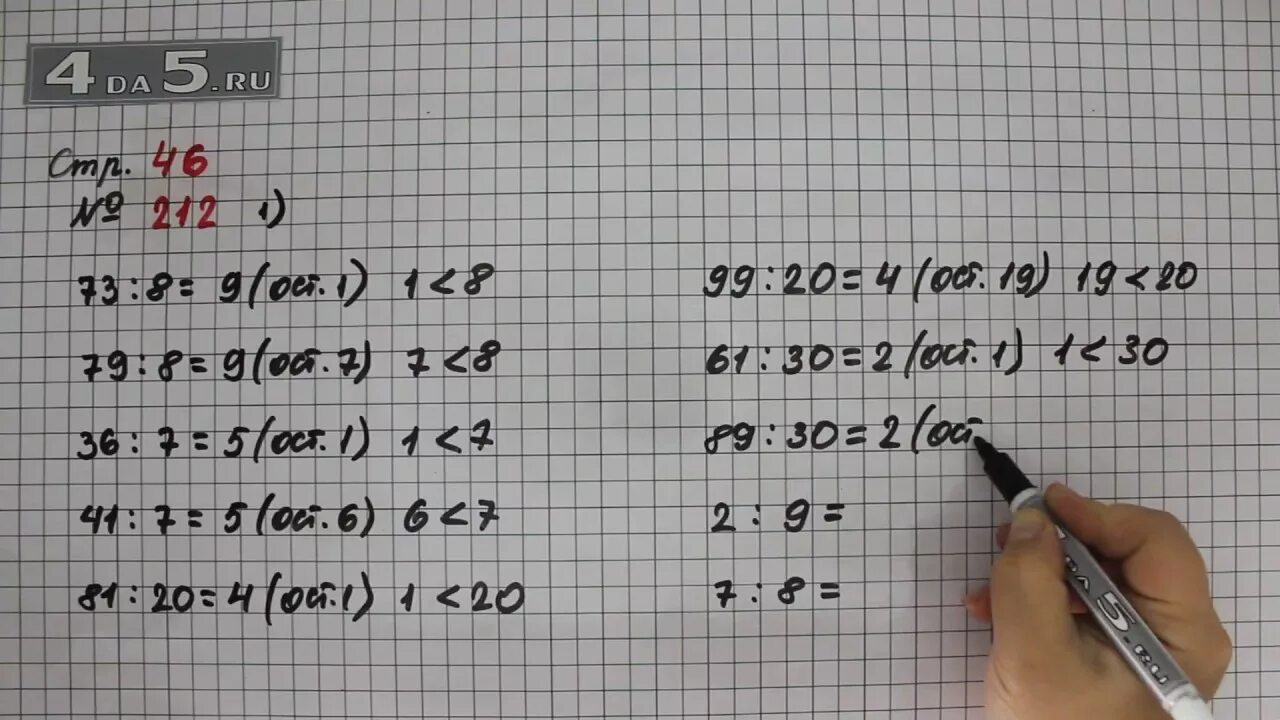 4DA5.RU
Стр. 46
№ 212 1)
73 : 8 = 9 (ост. 1) 1 < 8
79 : 8 = 9 (ост. 7) 7 < 8
36 : 7 = 5 (ост. 1) 1 < 7
41 : 7 = 5 (ост. 6) 6 < 7
81 : 20 = 4 (ост. 1) 1 < 20
99 : 20 = 4 (ост. 19) 19 < 20
61 : 30 = 2 (ост. 1) 1 < 30
89 : 30 = 2 (ост
2 : 9 =
7 : 8 =
DA5.RU